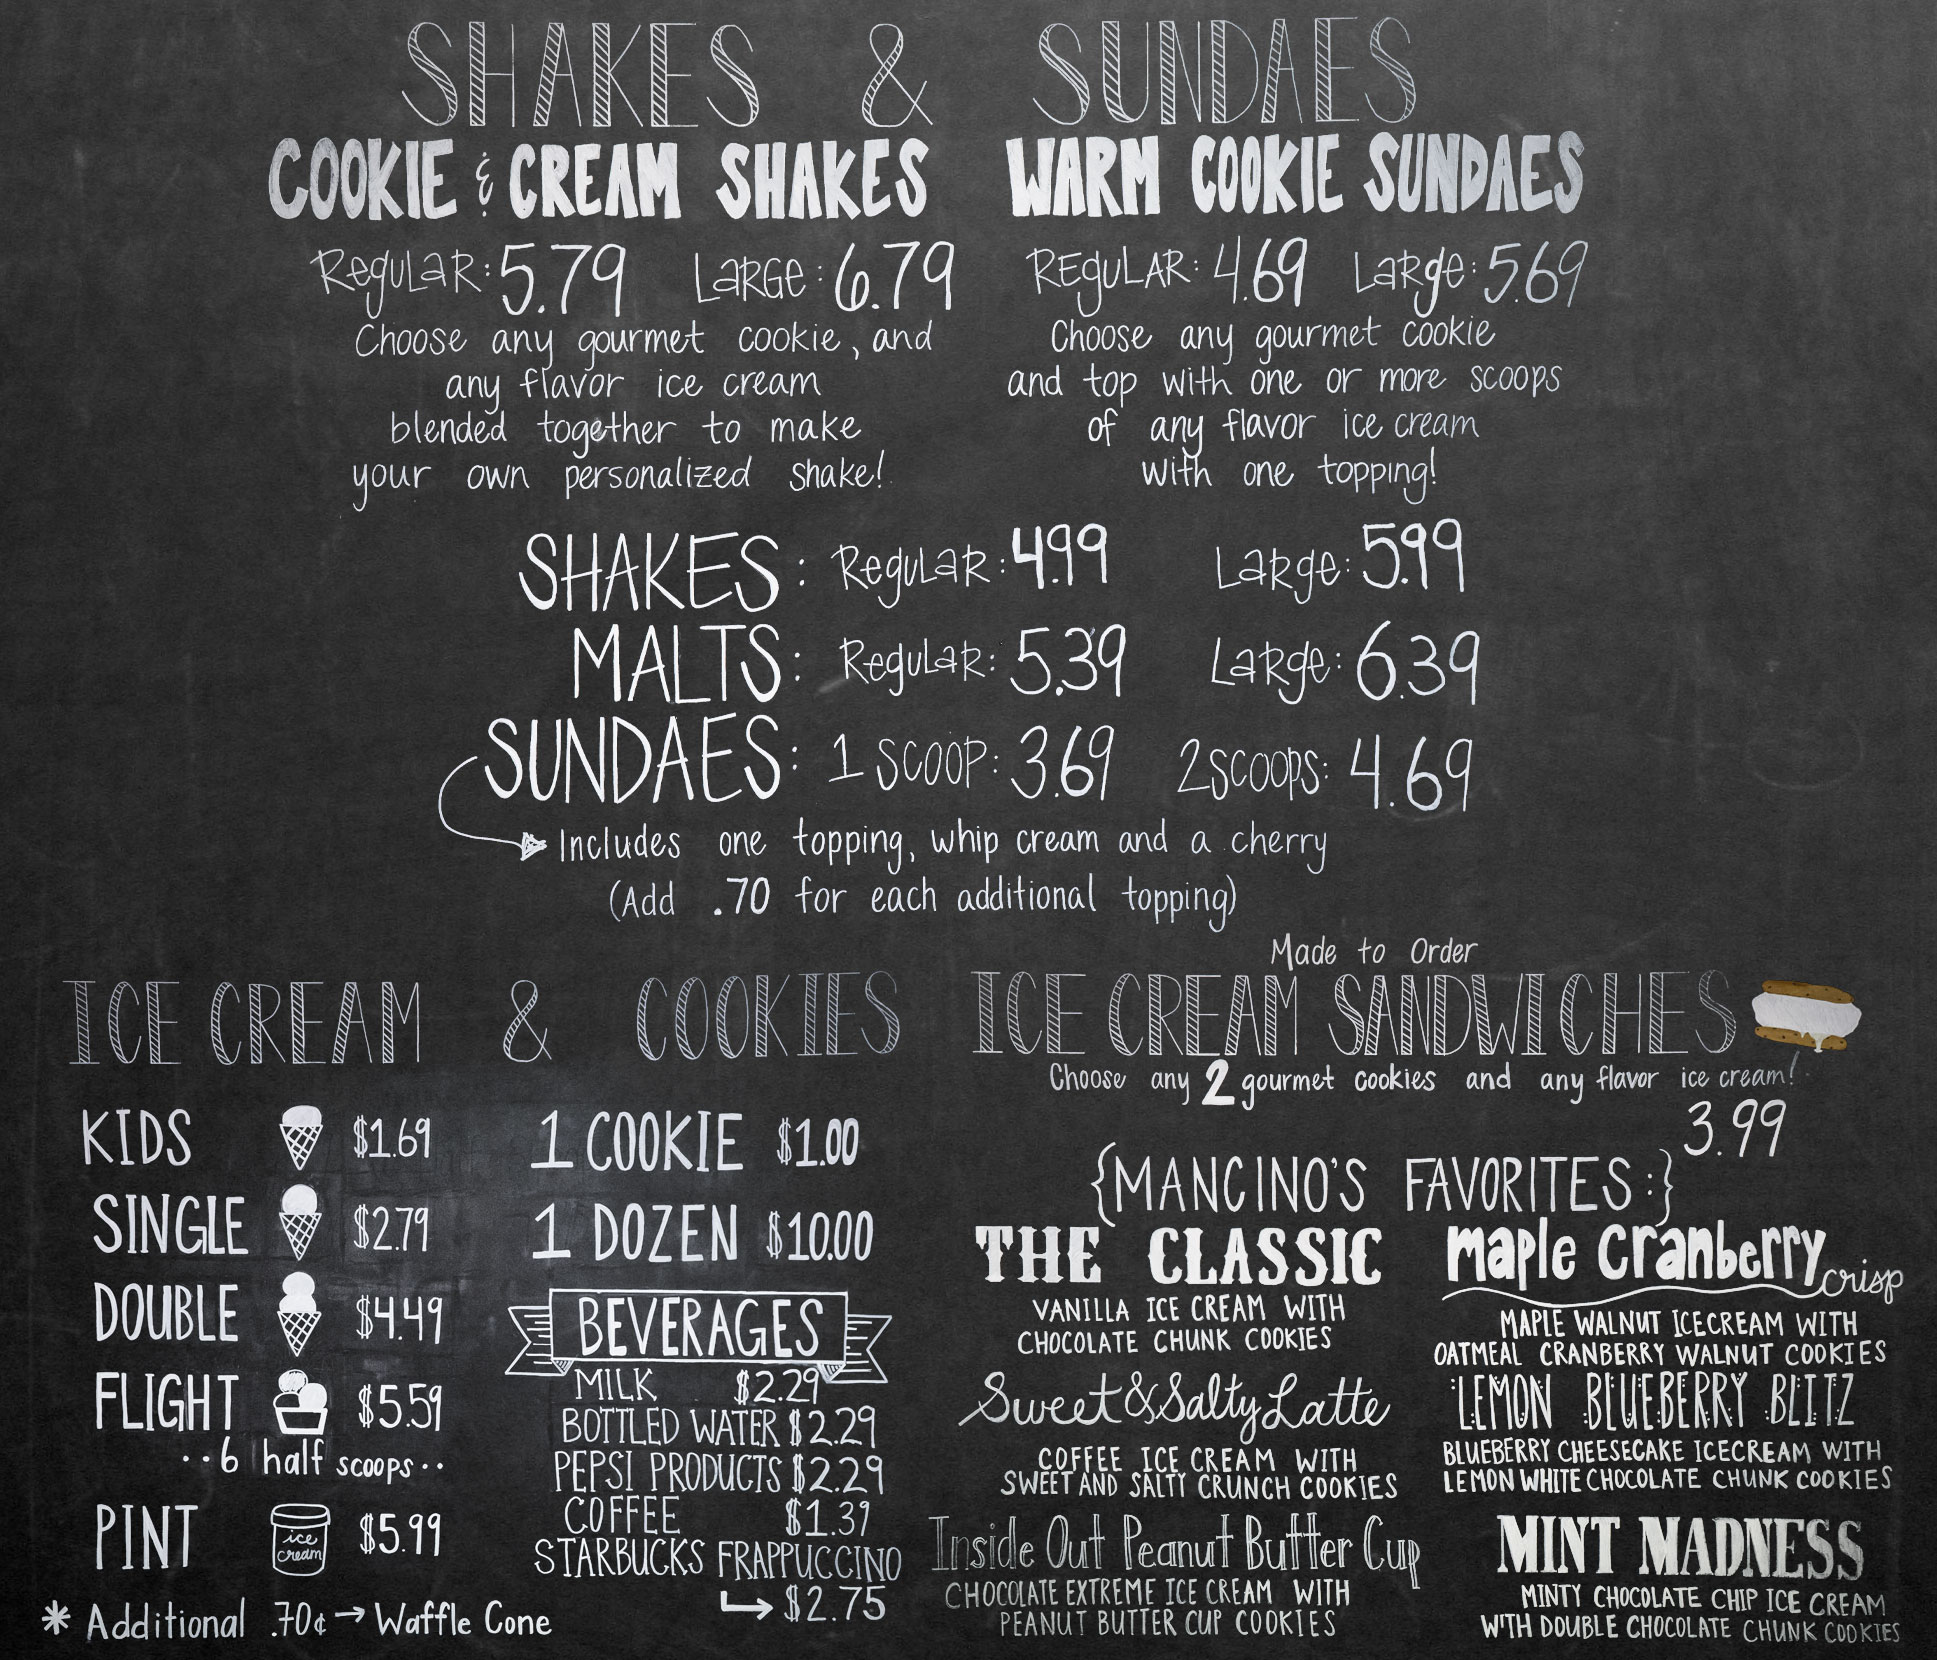 SHAKES & SUNDAES
COOKIE & CREAM SHAKES
Regular: 5.79 Large: 6.79
Choose any gourmet cookie, and
any flavor ice cream
blended together to make
your own personalized shake!
WARM COOKIE SUNDAES
Regular: 4.69 Large: 5.69
Choose any gourmet cookie
and top with one or more scoops
of any flavor ice cream
with one topping!
SHAKES: Regular: 4.99 Large: 5.99
MALTS: Regular: 5.39 Large: 6.39
SUNDAES: 1 SCOOP: 3.69 2 SCOOPS: 4.69
Includes one topping, whip cream and a cherry
(Add .70 for each additional topping)
ICE CREAM & COOKIES
KIDS $1.69
SINGLE $2.79
DOUBLE $4.49
FLIGHT $5.59
··6 half scoops··
PINT ice cream $5.99
* Additional .70¢ → Waffle Cone
1 COOKIE $1.00
1 DOZEN $10.00
BEVERAGES
MILK $2.29
BOTTLED WATER $2.29
PEPSI PRODUCTS $2.29
COFFEE $1.39
STARBUCKS FRAPPUCCINO
$2.75
Made to Order
ICE CREAM SANDWICHES
Choose any 2 gourmet cookies and any flavor ice cream!
3.99
{MANCINO'S FAVORITES:}
THE CLASSIC
VANILLA ICE CREAM WITH
CHOCOLATE CHUNK COOKIES
Sweet & Salty Latte
COFFEE ICE CREAM WITH
SWEET AND SALTY CRUNCH COOKIES
Inside Out Peanut Butter Cup
CHOCOLATE EXTREME ICE CREAM WITH
PEANUT BUTTER CUP COOKIES
Maple Cranberry crisp
MAPLE WALNUT ICECREAM WITH
OATMEAL CRANBERRY WALNUT COOKIES
LEMON BLUEBERRY BLITZ
BLUEBERRY CHEESECAKE ICECREAM WITH
LEMON WHITE CHOCOLATE CHUNK COOKIES
MINT MADNESS
MINTY CHOCOLATE CHIP ICE CREAM
WITH DOUBLE CHOCOLATE CHUNK COOKIES